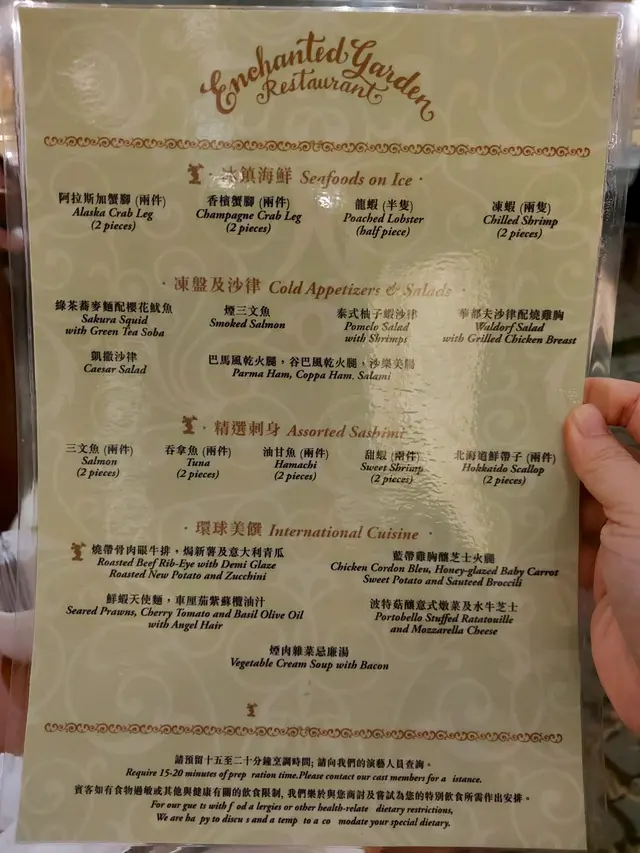 Enchanted Garden
Restaurant
冰鎮海鮮 Seafoods on Ice
阿拉斯加蟹腳 (兩件)
Alaska Crab Leg
(2 pieces)
香檳蟹腳 (兩件)
Champagne Crab Leg
(2 pieces)
龍蝦 (半隻)
Poached Lobster
(half piece)
凍蝦 (兩隻)
Chilled Shrimp
(2 pieces)
· 凍盤及沙律 Cold Appetizers & Salads ·
綠茶蕎麥麵配櫻花魷魚
Sakura Squid
with Green Tea Soba
煙三文魚
Smoked Salmon
泰式柚子蝦沙律
Pomelo Salad
with Shrimps
華都夫沙律配燒雞胸
Waldorf Salad
with Grilled Chicken Breast
凱撒沙律
Caesar Salad
巴馬風乾火腿，谷巴風乾火腿，沙樂美腸
Parma Ham, Coppa Ham. Salami
· 精選刺身 Assorted Sashimi
三文魚 (兩件)
Salmon
(2 pieces)
吞拿魚 (兩件)
Tuna
(2 pieces)
油甘魚 (兩件)
Hamachi
(2 pieces)
甜蝦 (兩件)
Sweet Shrimp
(2 pieces)
北海道鮮帶子 (兩件)
Hokkaido Scallop
(2 pieces)
· 環球美饌 International Cuisine ·
燒帶骨肉眼牛排，焗新薯及意大利青瓜
Roasted Beef Rib-Eye with Demi Glaze
Roasted New Potato and Zucchini
藍帶雞胸釀芝士火腿
Chicken Cordon Bleu, Honey-glazed Baby Carrot
Sweet Potato and Sauteed Broccili
鮮蝦天使麵，車厘茄紫蘇欖油汁
Seared Prawns, Cherry Tomato and Basil Olive Oil
with Angel Hair
波特菇釀意式燉菜及水牛芝士
Portobello Stuffed Ratatouille
and Mozzarella Cheese
煙肉雜菜忌廉湯
Vegetable Cream Soup with Bacon
請預留十五至二十分鐘烹調時間; 請向我們的演藝人員查詢。
Require 15-20 minutes of prep ration time.Please contact our cast members for a istance.
賓客如有食物過敏或其他與健康有關的飲食限制, 我們樂於與您商討及嘗試為您的特別飲食所需作出安排。
For our gue ts with f od a lergies or other health-relate dietary restrictions,
We are ha py to discu s and a temp to a co modate your special dietary.